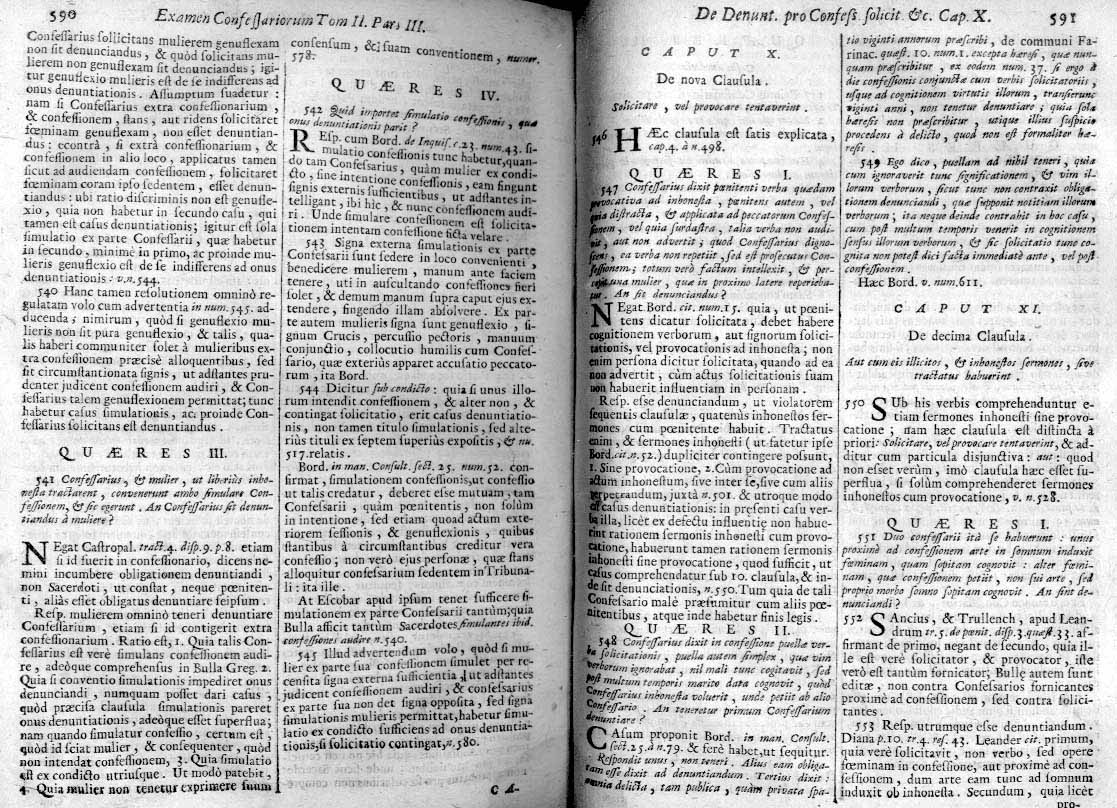 590 Examen Confessariorum Tom II. Pars III.
Confessarius sollicitans mulierem genuflexam
non sit denunciandus, & quòd solicitans mu-
lierem non genuflexam sit denunciandus; igi-
tur genuflexio mulieris est de se indifferens ad
onus denuntiationis. Assumptum suadetur:
nam si Confessarius extra confessionarium,
& confessionem, stans, aut ridens solicitaret
fœminam genuflexam, non esset denuntian-
dus: econtrà, si extrà confessionarium, &
confessionem in alio loco, applicatus tamen
sicut ad audiendam confessionem, solicitaret
fœminam coram ipso sedentem, esset denun-
tiandus: ubi ratio discriminis non est genufle-
xio, quia non habetur in secundo casu, qui
tamen est casus denuntiationis; igitur est sola
simulatio ex parte Confessarii, quæ habetur
in secundo, minimè in primo, ac proinde mu-
lieris genuflexio est de se indifferens ad onus
denuntiationis: v.n.544.
540 Hanc tamen resolutionem omninò re-
gulatam volo cum advertentia in num.545. ad-
ducenda; nimirum, quòd si genuflexio mu-
lieris non sit pura genuflexio, & talis, qua-
lis haberi communiter solet à mulieribus ex-
tra confessionem præcisè alloquentibus, sed
sit circumstantionata signis, ut adstantes pru-
denter judicent confessionem audiri, & Con-
fessarius talem genuflexionem permittat; tunc
habetur casus simulationis, ac proinde Con-
fessarius solicitans est denuntiandus.
QUÆRES III.
541 Confessarius, & mulier, ut liberiùs inho-
nesta tractarent, convenerunt ambo simulare Con-
fessionem, & sic egerunt. An Confessarius sit denun-
tiandus à muliere?
NEgat Castropal. tract.4. disp.9. p.8. etiam
si id fuerit in confessionario, dicens ne-
mini incumbere obligationem denuntiandi,
non Sacerdoti, ut constat, neque pœniten-
ti, aliàs esset obligatus denuntiare seipsum.
Resp. mulierem omninò teneri denuntiare
Confessarium, etiam si id contigerit extra
confessionarium. Ratio est, 1. Quia talis Con-
fessarius est verè simulans confessionem audi-
re, adeòque comprehensus in Bulla Greg. 2.
Quia si conventio simulationis impediret onus
denunciandi, numquam posset dari casus,
quòd præcisa clausula simulationis pareret
onus denuntiationis, adeòque esset superflua;
nam quando simulatur confessio, certum est,
quòd id sciat mulier, & consequenter, quòd
non intendat confessionem, 3. Quia simulatio
est ex condicto utriusque. Ut modò patebit,
4. Quia mulier non tenetur exprimere suum
consensum, & suam conventionem, numer.
578.
QUÆRES IV.
542 Quid importet simulatio confessionis, quæ
onus denuntiationis parit?
REsp. cum Bord. de Inquis. c.23. num.43. si-
mulatio confessionis tunc habetur, quan-
do tam Confessarius, quàm mulier ex condi-
cto, sine intentione confessionis, eam fingunt
signis externis sufficientibus, ut adstantes in-
telligant, ibi hic, & nunc confessionem audi-
ri. Unde simulare confessionem est solicita-
tionem intentam confessione ficta velare.
543 Signa externa simulationis ex parte
Confessarii sunt sedere in loco convenienti,
benedicere mulierem, manum ante faciem
tenere, uti in auscultando confessiones fieri
solet, & demum manum supra caput ejus ex-
tendere, fingendo illam absolvere. Ex par-
te autem mulieris signa sunt genuflexio, si-
gnum Crucis, percussio pectoris, manuum
conjunctio, collocutio humilis cum Confes-
sario, quæ exteriùs apparet accusatio peccato-
rum, ita Bord.
544 Dicitur sub condicto: quia si unus illo-
rum intendit confessionem, & alter non, &
contingat solicitatio, erit casus denuntiatio-
nis, non tamen titulo simulationis, sed alte-
riùs tituli ex septem superiùs expositis, & nu.
517. relatis.
Bord. in man. Consult. sect. 25. num.52. con-
firmat, simulationem confessionis, ut confessio
ut talis credatur, deberet esse mutuam, tam
Confessarii, quàm pœnitentis, non solùm
in intentione, sed etiam quoad actum exte-
riorem sessionis, & genuflexionis, quibus
stantibus à circumstantibus creditur vera
confessio; non verò ejus personæ, quæ stans
alloquitur confessarium sedentem in Tribuna-
li: ita ille.
At Escobar apud ipsum tenet sufficere si-
mulationem ex parte Confessarii tantùm; quia
Bulla afficit tantùm Sacerdotes, simulantes ibid.
confessiones audire n.540.
545 Illud advertendum volo, quòd si mu-
lier ex parte sua confessionem simulet per re-
censita signa externa sufficientia, ut adstantes
judicent confessionem audiri, & confessarius
ex parte sua non det signa opposita, sed signa
simulationis mulieris permittat, habetur simu-
latio ex condicto sufficiens ad onus denuntia-
tionis, si solicitatio contingat, n.580.
CA-
De Denunt. pro Confess. solicit &c. Cap. X. 591
CAPUT X.
De nova Clausula.
Solicitare, vel provocare tentaverint.
546 HÆc clausula est satis explicata,
cap.4. à n.498.
QUÆRES I.
547 Confessarius dixit pœnitenti verba quædam
provocativa ad inhonesta, pœnitens autem, vel
quia distracta, & applicata ad peccatorum Confes-
sionem, vel quia surdastra, talia verba non audi-
vit, aut non advertit; quod Confessarius digno-
scens, ea verba non repetiit, sed est prosecutus Con-
fessionem; totum verò factum intellexit, & per-
cepit una mulier, quæ in proximo latere reperieba-
tur. An sit denunciandus?
NEgat Bord. cit. num.15. quia, ut pœni-
tens dicatur solicitata, debet habere
cognitionem verborum, aut signorum solici-
tationis, vel provocationis ad inhonesta; non
enim persona dicitur solicitata, quando ad ea
non advertit, cùm actus solicitationis suam
non habuerit influentiam in personam.
Resp. esse denunciandum, ut violatorem
sequentis clausulæ, quatenùs inhonestos ser-
mones cum pœnitente habuit. Tractatus
enim, & sermones inhonesti (ut fatetur ipse
Bord. cit. n.52.) dupliciter contingere possunt,
1. Sine provocatione, 2. Cùm provocatione ad
actum inhonestum, sive inter se, sive cum aliis
perpetrandum, juxtà n.501. & utroque modo
est casus denuntiationis: in præsenti casu ver-
ba illa, licèt ex defectu influentiæ non habue-
rint rationem sermonis inhonesti cum provo-
catione, habuerunt tamen rationem sermonis
inhonesti sine provocatione, quod sufficit, ut
casus comprehendatur sub 10. clausula, & in-
de sit denuntiationis, n.550. Tum quia de tali
Confessario malè præsumitur cum aliis pœ-
nitentibus, atque inde habetur finis legis.
QUÆRES II.
548 Confessarius dixit in confessione puellæ ver-
ba solicitationis, puella autem simplex, quæ vim
verborum ignorabat, nil mali tunc cogitavit, sed
post multum temporis marito data cognovit, quòd
Confessarius inhonesta voluerit, unde petiit ab alio
Confessario. An teneretur primum Confessarium
denuntiare?
CAsum proponit Bord. in man. Consult.
sect.25. à n.79. & ferè habet, ut sequitur.
Respondit unus, non teneri. Alius eam obliga-
tam esse dixit ad denuntiandum. Tertius dixit:
omnia delicta, tam publica, quàm privata spa-
tio viginti annorum præscribi, de communi Fa-
rinac. quæst. 10. num.1. excepta hæresi, quæ nun-
quam præscribitur, ex eodem num. 37. si ergo à
die confessionis conjunctæ cum verbis solicitatoriis,
usque ad cognitionem virtutis illorum, transierunt
viginti anni, non tenetur denuntiare; quia sola
hæresis non præscribitur, utique illius suspicio
procedens à delicto, quod non est formaliter hæ-
resis.
549 Ego dico, puellam ad nihil teneri, quia
cum ignoraverit tunc significationem, & vim il-
lorum verborum, sicut tunc non contraxit obliga-
tionem denunciandi, quæ supponit notitiam illorum
verborum; ita neque deinde contrahit in hoc casu,
cum post multum temporis venerit in cognitionem
sensus illorum verborum, & sic solicitatio tunc co-
gnita non potest dici facta immediatè ante, vel post
confessionem.
Hæc Bord. v. num.611.
CAPUT XI.
De decima Clausula.
Aut cum eis illicitos, & inhonestos sermones, sive
tractatus habuerint.
550 SUb his verbis comprehenduntur e-
tiam sermones inhonesti sine provo-
catione; nam hæc clausula est distincta à
priori: Solicitare, vel provocare tentaverint, & ad-
ditur cum particula disjunctiva: aut: quod
non esset verùm, imò clausula hæc esset su-
perflua, si solùm comprehenderet sermones
inhonestos cum provocatione, v. n.528.
QUÆRES I.
551 Duo confessarii ità se habuerunt: unus
proximè ad confessionem arte in somnum induxit
fœminam, quam sopitam cognovit: alter fœmi-
nam, quæ confessionem petiit, non sui arte, sed
proprio morbo somno sopitam cognovit. An sint de-
nunciandi?
552 SAncius, & Trullench, apud Lean-
drum tr.5. de pœnit. disp.3. quæst.33. af-
firmant de primo, negant de secundo, quia il-
le est verè solicitator, & provocator, iste
verò est tantùm fornicator; Bullæ autem sunt
editæ, non contra Confessarios fornicantes
proximè ad confessionem, sed contra solici-
tantes.
553 Resp. utrumque esse denunciandum.
Diana p.10. tr.4. res. 43. Leander cit. primum,
quia verè solicitavit, non verbo, sed opere
fœminam in confessione, aut proximè ad con-
fessionem, dum arte eam tunc ad somnum
induxit ob inhonesta. Secundum, quia licèt
pro-